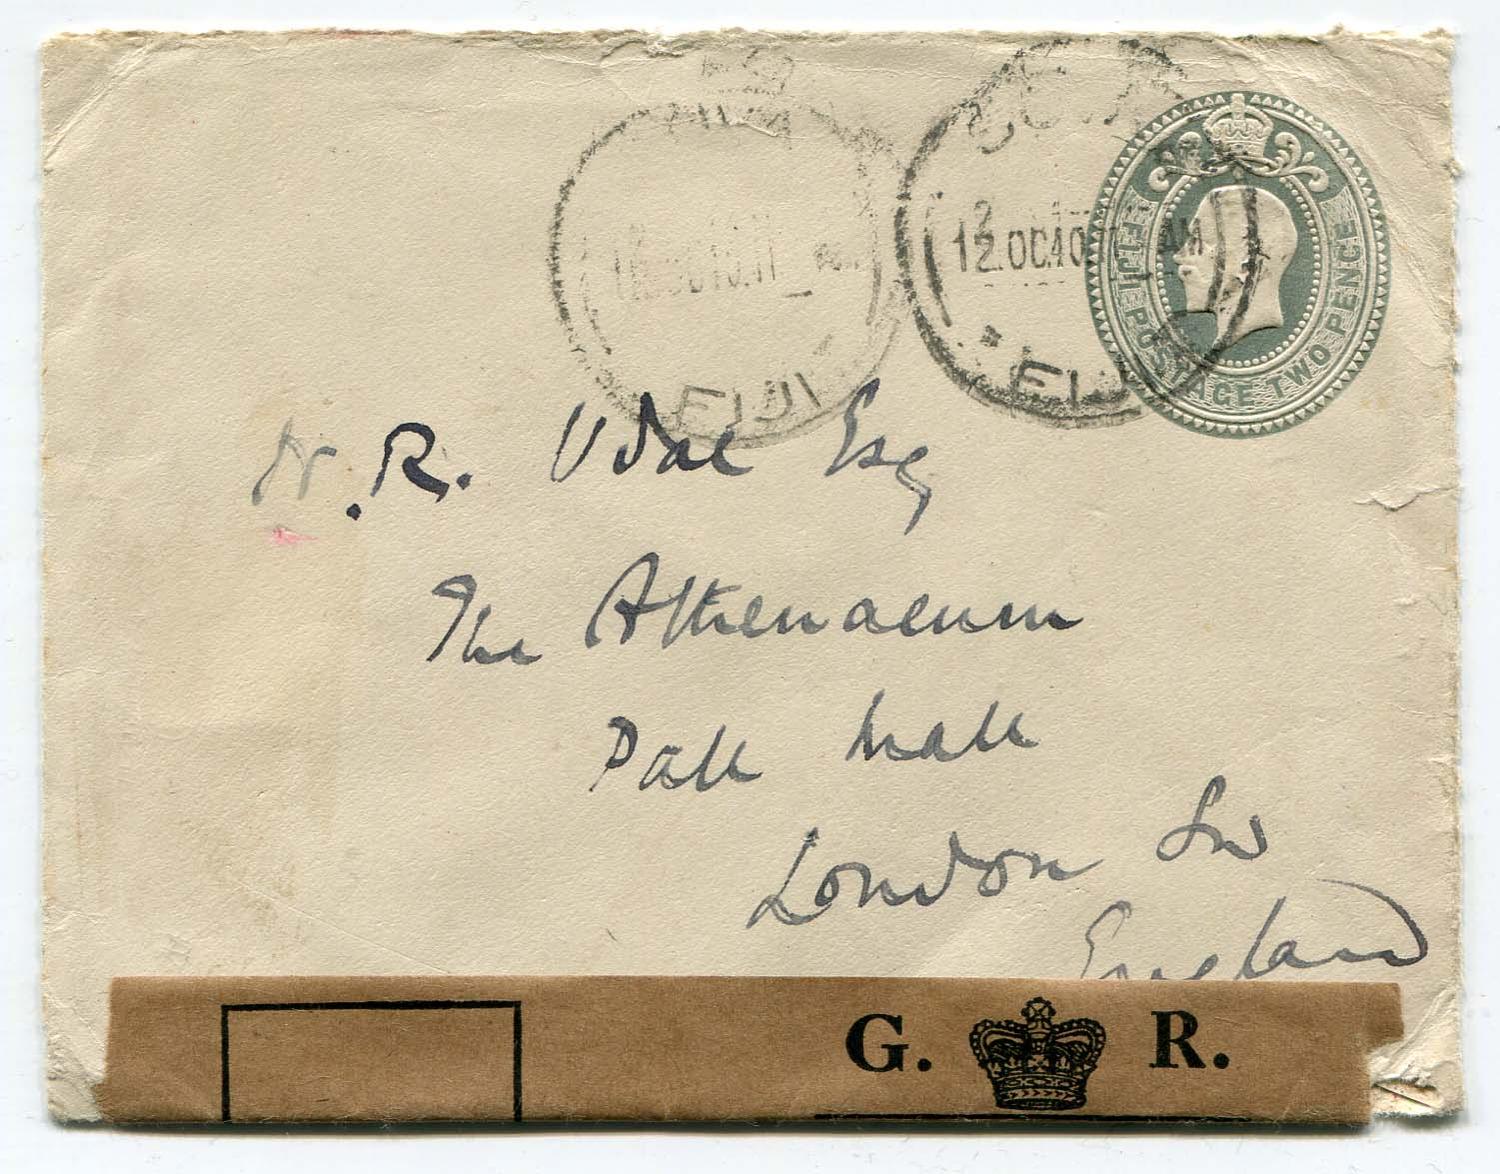 SUVA
FIJI
12.OC.40.11 AM
FIJI
FIJI POSTAGE TWO PENCE
N.R. Udal Esq
The Athenaeum
Pall Mall
London SW
England
G. R.